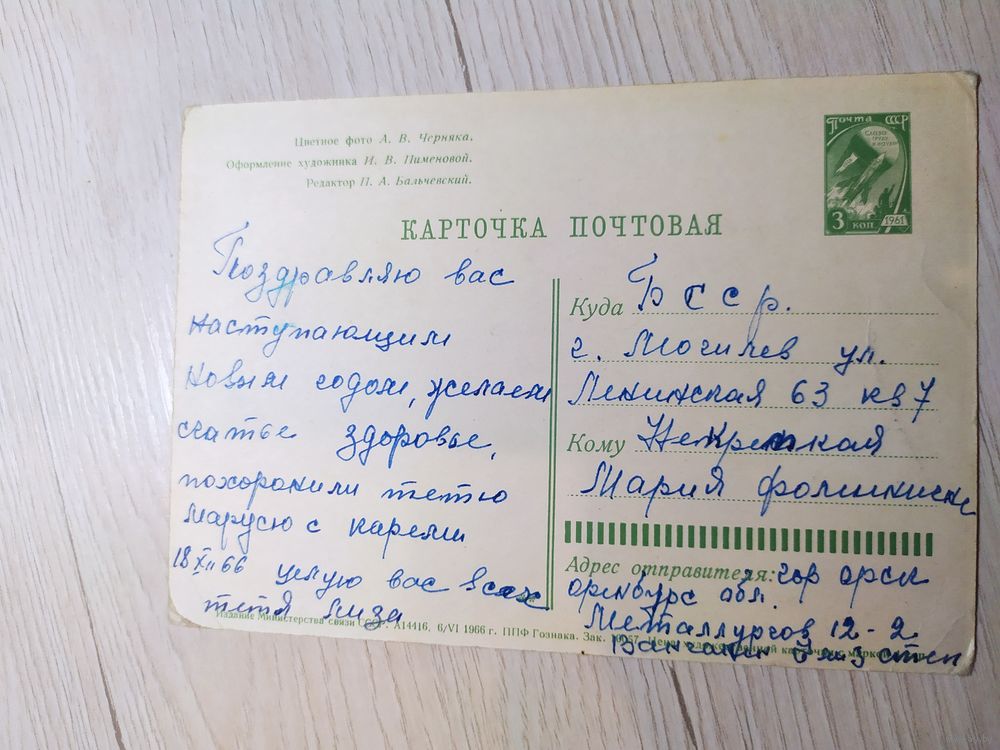 Цветное фото А. В. Черняка.
Оформление художника И. В. Пименовой.
Редактор П. А. Бальчевский.
Почта СССР
Слава труду и науке
3 коп
1961
КАРТОЧКА ПОЧТОВАЯ
Поздравляю вас
наступающим
Новым годом, желаем
счатье здоровье,
похоронили тетю
Марусю с карели
18 XII 66 целую вас всех
тетя Лиза
Куда БССР.
г. Могилев ул.
Ленинская 63 кв 7
Кому
Мария
Адрес отправителя: гор орск
оренбурс обл.
Металлургов 12-2
Издание Министерства связи СССР. А14416, 6/VI 1966 г. ППФ Гознака. Зак.